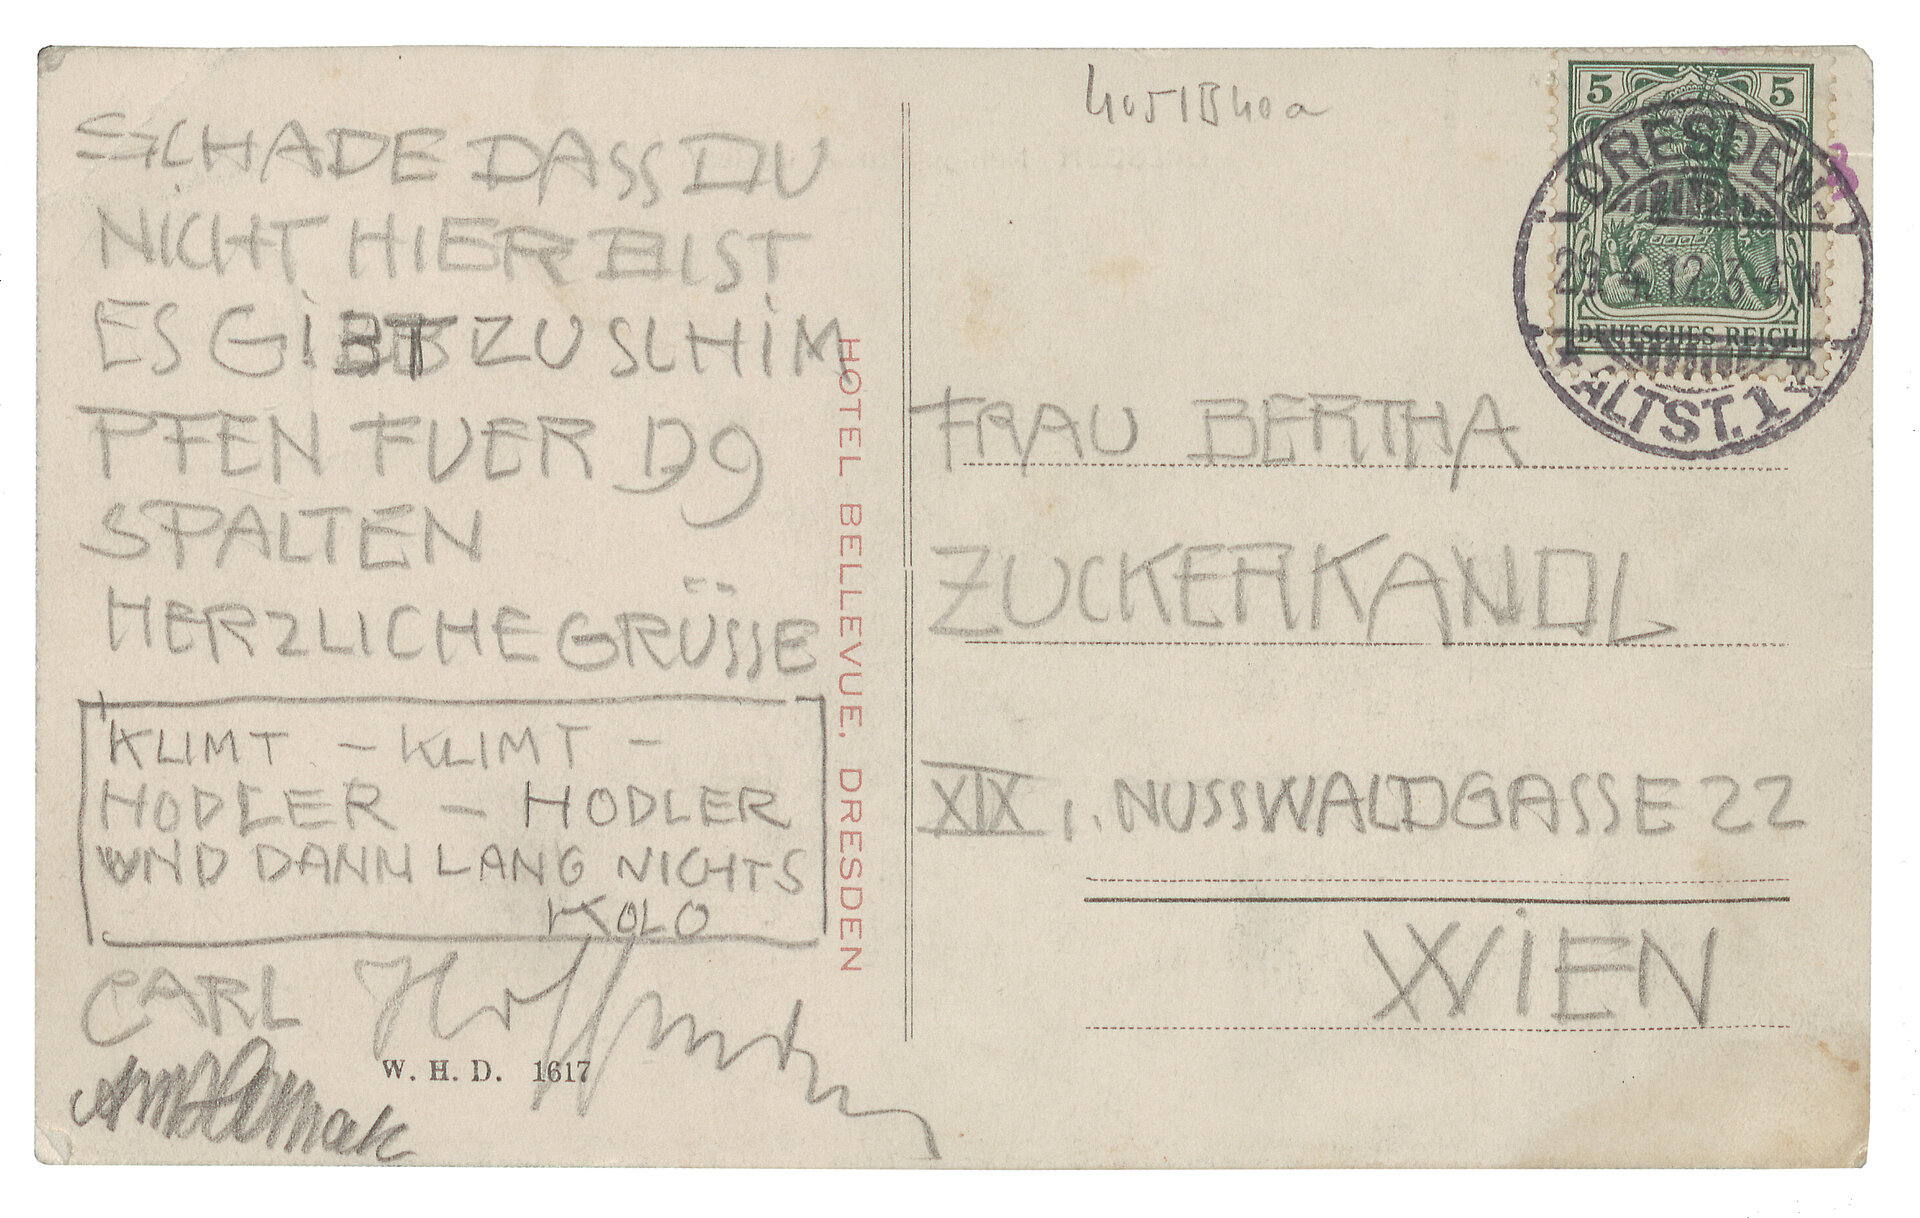 SCHADE DASS DU
NICHT HIER BIST
ES GIBT ZU SCHIM
PFEN FUER 19
SPALTEN
HERZLICHE GRÜSSE
KLIMT – KLIMT –
HODLER – HODLER
UND DANN LANG NICHTS
KOLO
CARL
W. H. D. 1617
HOTEL BELLEVUE, DRESDEN
5 5
DEUTSCHES REICH
DRESDEN.
ALTST. 1
FRAU BERTHA
ZUCKERKANDL
XIX, NUSSWALDGASSE 22
WIEN